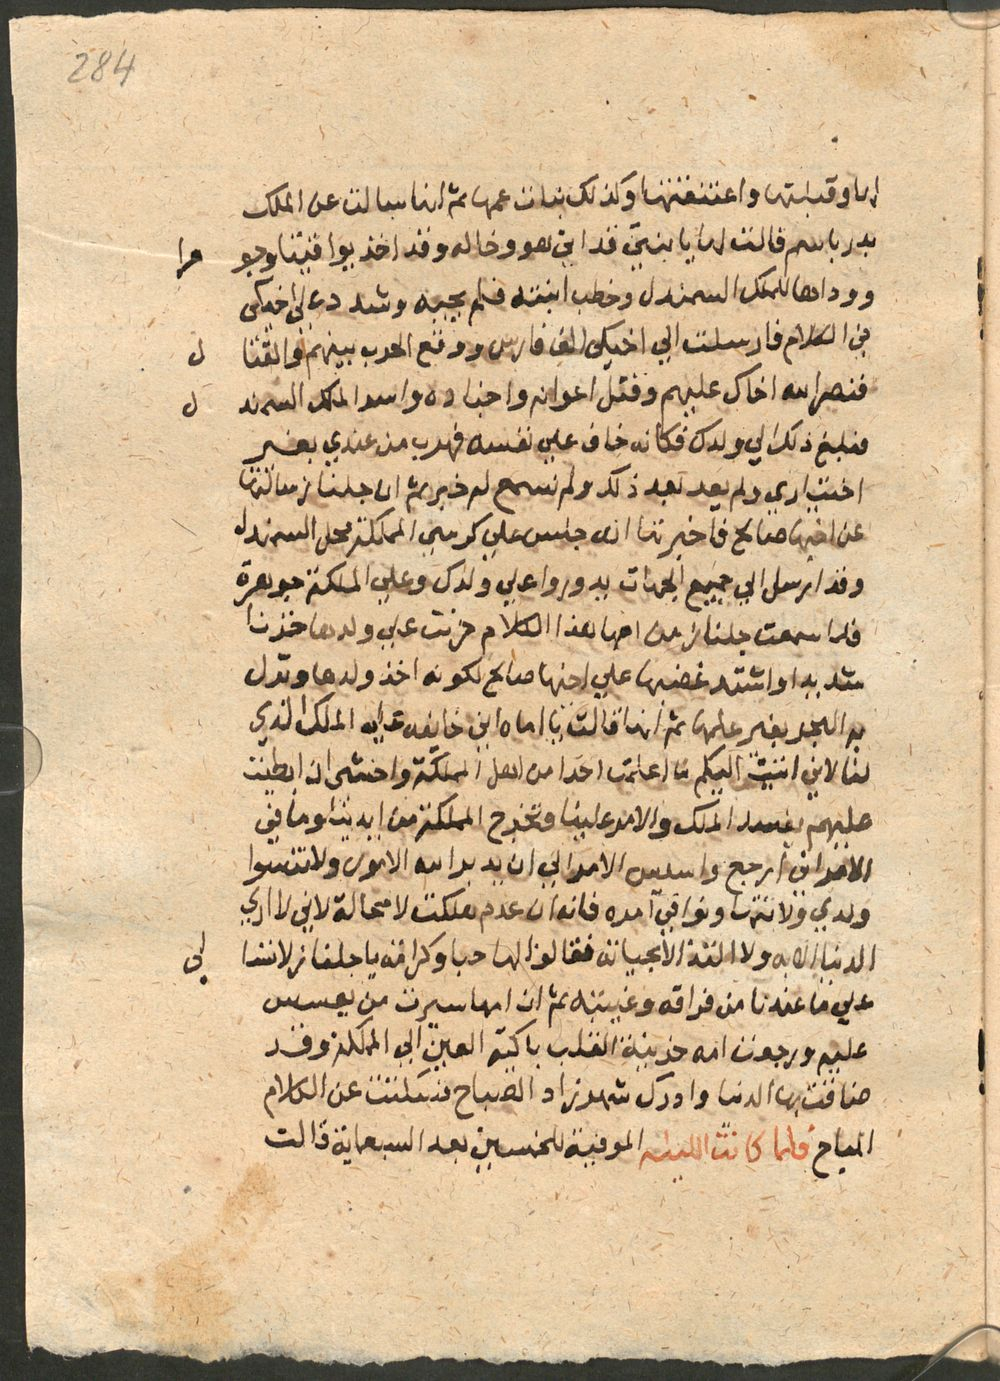 284
اليها وقبلتها واعتنقتها وكذلك بنات عمها ثم انها سالت عن الملك
بدر باسم قالت لها يا بنتي قد اتي هو وخاله وقد اخذ يواقيتا وجو
هرا
وودا لها للملك السمندل وخطب ابنته فلم يجيبه وشدد علي اخيكي
في الكلام فارسلت الي اخيكي الف فارس ووقع الحرب بينهم والقتا
ل
فنصر الله اخاك عليهم وقتل اعوانه واجناده واسر الملك السمند
ل
فبلغ ذلك الي ولدك فكانه خاف علي نفسه فهرب من عندي بغير
اختياري ولم يعد بعد ذلك ولم نسمع له خبر ثم ان جلنار سالتها
عن اخيها صالح فاخبرتها انه جلس علي كرسي المملكة محل السمندل
وقد ارسل الي جميع الجهات يدوروا علي ولدك وعلي الملكة جوهرة
فلما سمعت جلنار من امها هذا الكلام حزنت علي ولدها حزنا
شديدا واشتد غضبها علي اخيها صالح لكونه اخذ ولدها ونزل
به البحر بغير علمها ثم انها قالت يا اماه اني خايفه علي الملك الذي
لنا لاني اتيت اليكم ما اعلمت احدا من اهل المملكة واخشي ان ابطيت
عليهم يفسد الملك والامر علينا وتخرج المملكة من ايدينا وما في
الامر اني ارجع واسلس الامر الي ان يدبر الله الامور ولا تنسوا
ولدي ولا تتهاونوا في امره فانه ان عدم هلكت لا محالة لاني لا اري
الدنيا الا به ولا القنة الا بحياته فقالوا لها حبا وكرامه يا جلنار لا تسا
لي
علي ما عندنا من فراقه وغيبته ثم ان امها سيرت من يعسس
عليه ورجعت امه حزينة القلب باكية العين الي المملكة وقد
ضاقت بها الدنيا وادرك شهرزاد الصباح فسكتت عن الكلام
المباح فلما كانت الليلة الموفية للخمسين بعد السبعماية قالت